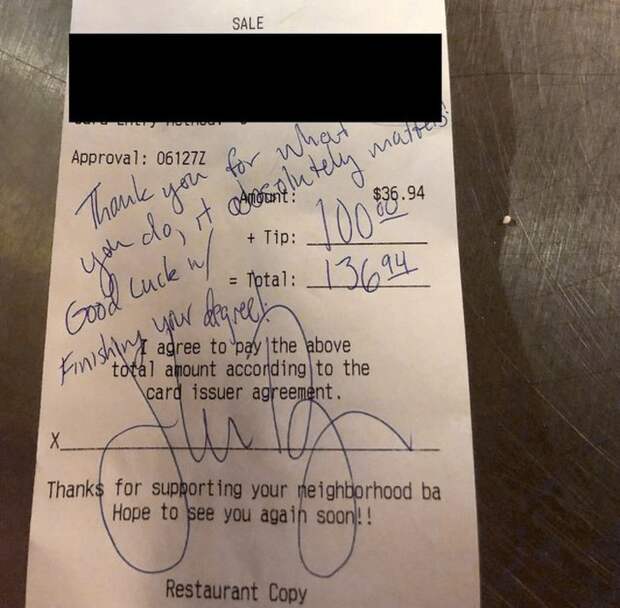 SALE
Approval: 06127Z
Thank you for what
you do, it absolutely matters!
Good Luck w/
Finishing your degree!
Amount: $36.94
+ Tip: 100.00
= Total: 136.94
I agree to pay the above
total amount according to the
card issuer agreement.
X
Thanks for supporting your neighborhood ba
Hope to see you again soon!!
Restaurant Copy